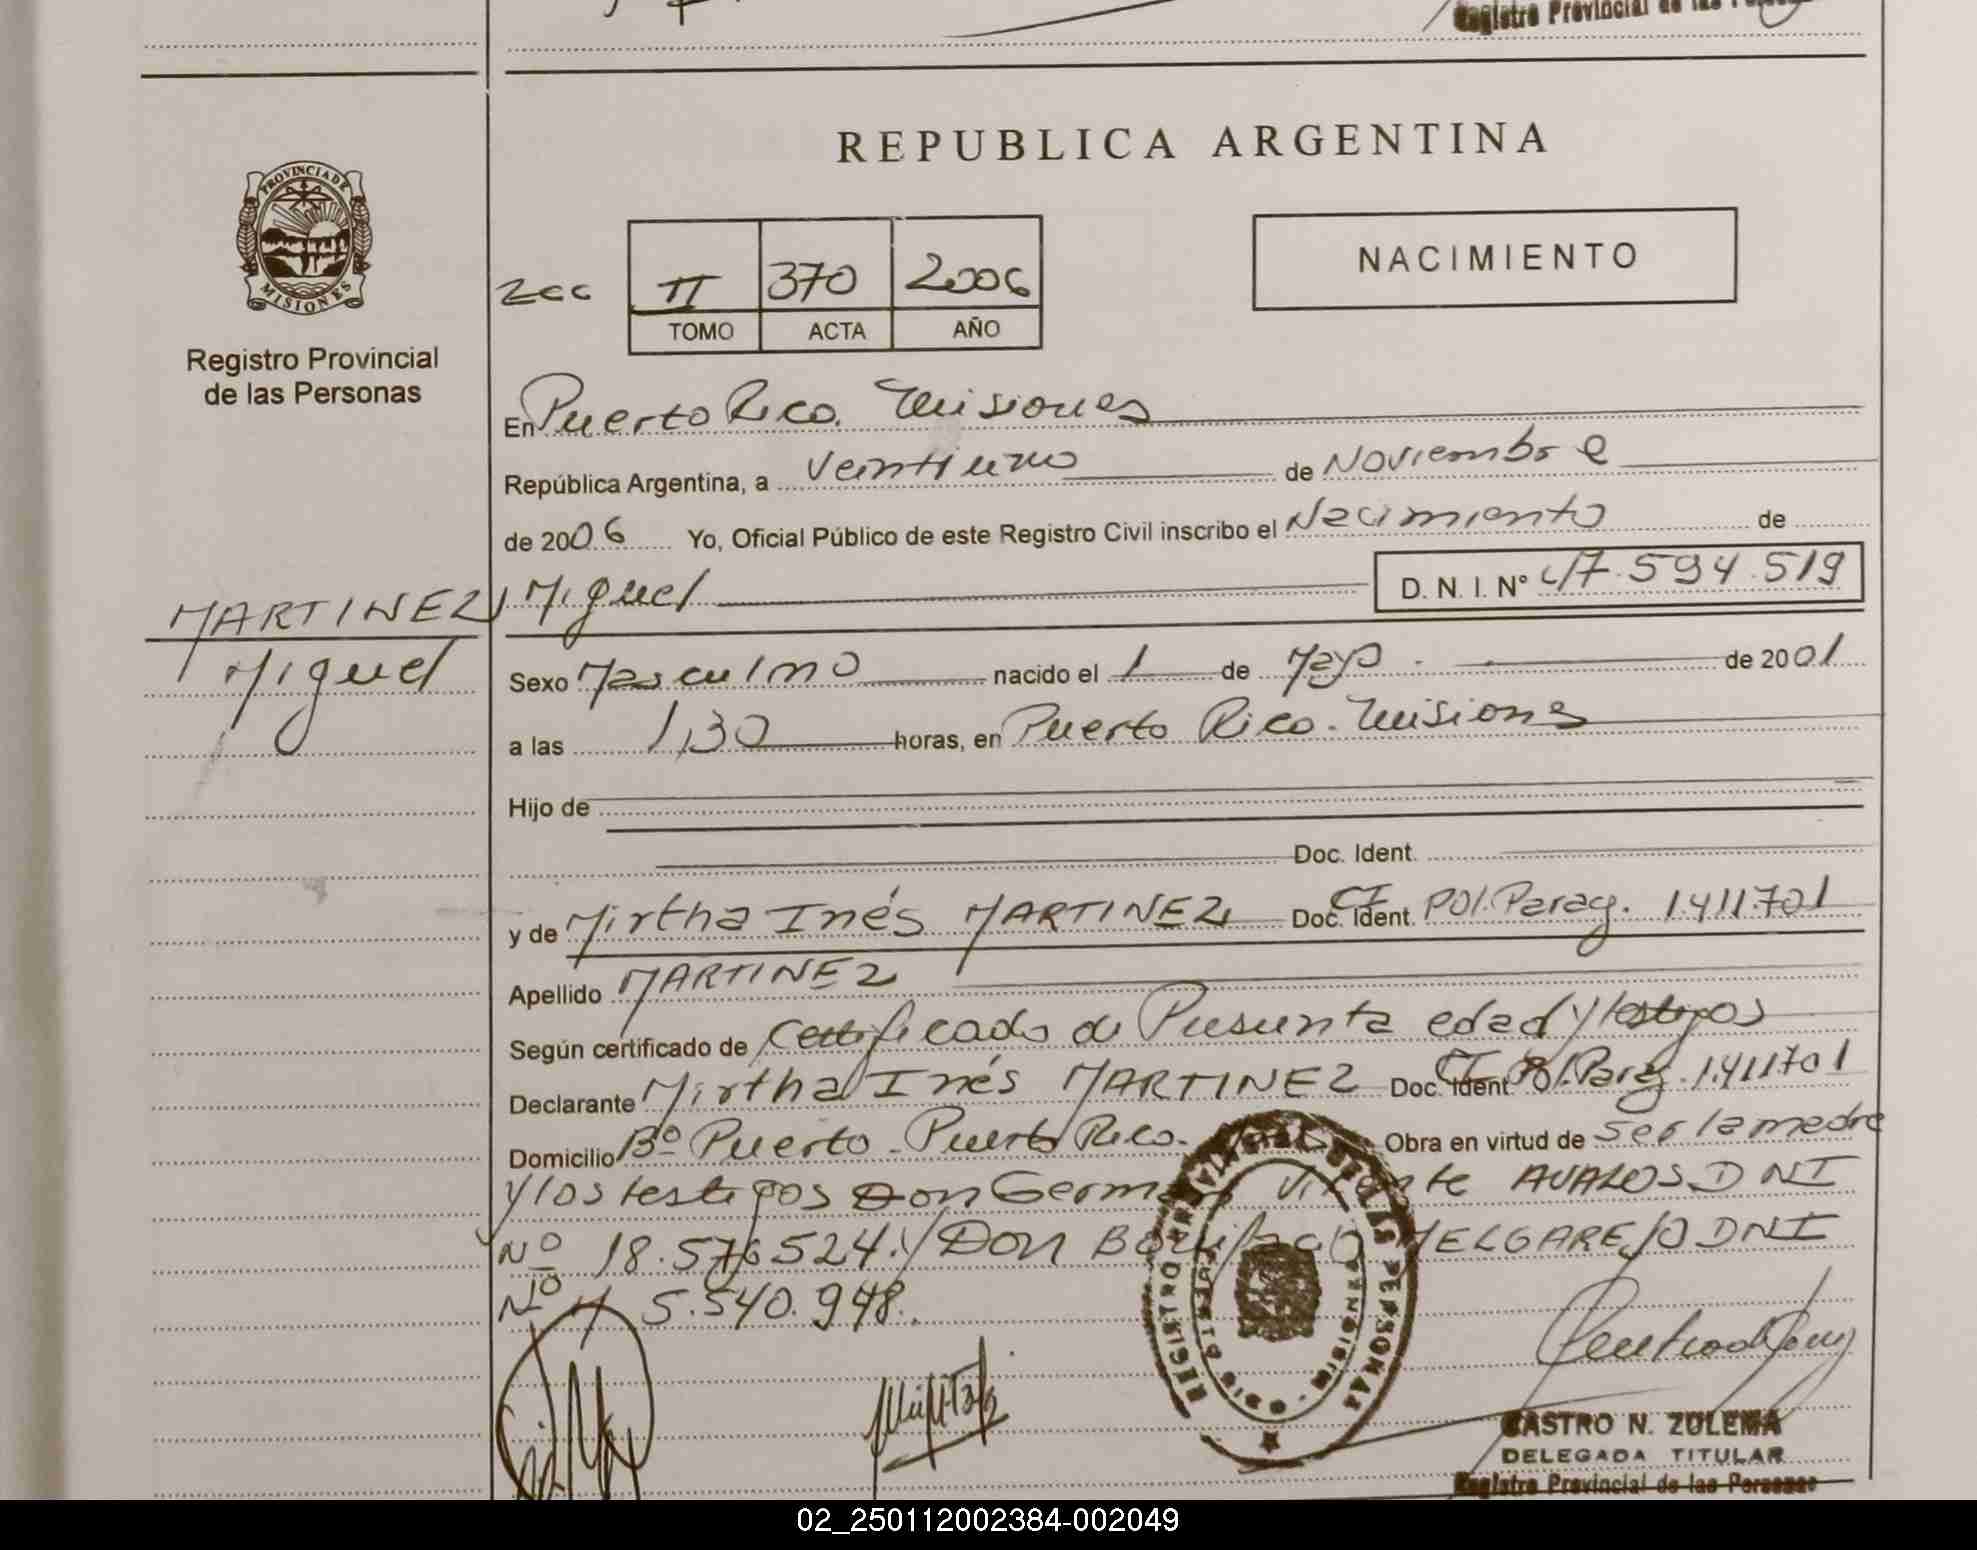 Registro Provincial de las
REPUBLICA ARGENTINA
PROVINCIA DE
MISIONES
Registro Provincial
de las Personas
II 370 2006
TOMO ACTA AÑO
NACIMIENTO
En Puerto Rico. Misiones
República Argentina, a Veintiuno de Noviembre
de 2006 Yo, Oficial Público de este Registro Civil inscribo el Nacimiento de
MARTINEZ
Miguel
Miguel D. N. I. N° 47.594.519
Sexo Masculino nacido el 1 de Mayo de 2001
a las 1,30 horas, en Puerto Rico. Misiones
Hijo de
Doc. Ident.
y de Mirtha Inés MARTINEZ Doc. Ident. CI Pol. Parag. 1.411701
Apellido MARTINEZ
Según certificado de Certificado de Presunta edad y testigos
Declarante Mirtha Inés MARTINEZ Doc. Ident. CI Pol. Parag. 1.411701
Domicilio Bº Puerto - Puerto Rico. Obra en virtud de ser la madre
y los testigos Don German Vicente AVALOS DNI
Nº 18.576524. y Don Bonifacio MELGAREJO DNI
Nº 5.540.948.
REGISTRO PROVINCIAL DE LAS PERSONAS
CASTRO N. ZULEMA
DELEGADA TITULAR
Registro Provincial de las Personas
02_250112002384-002049